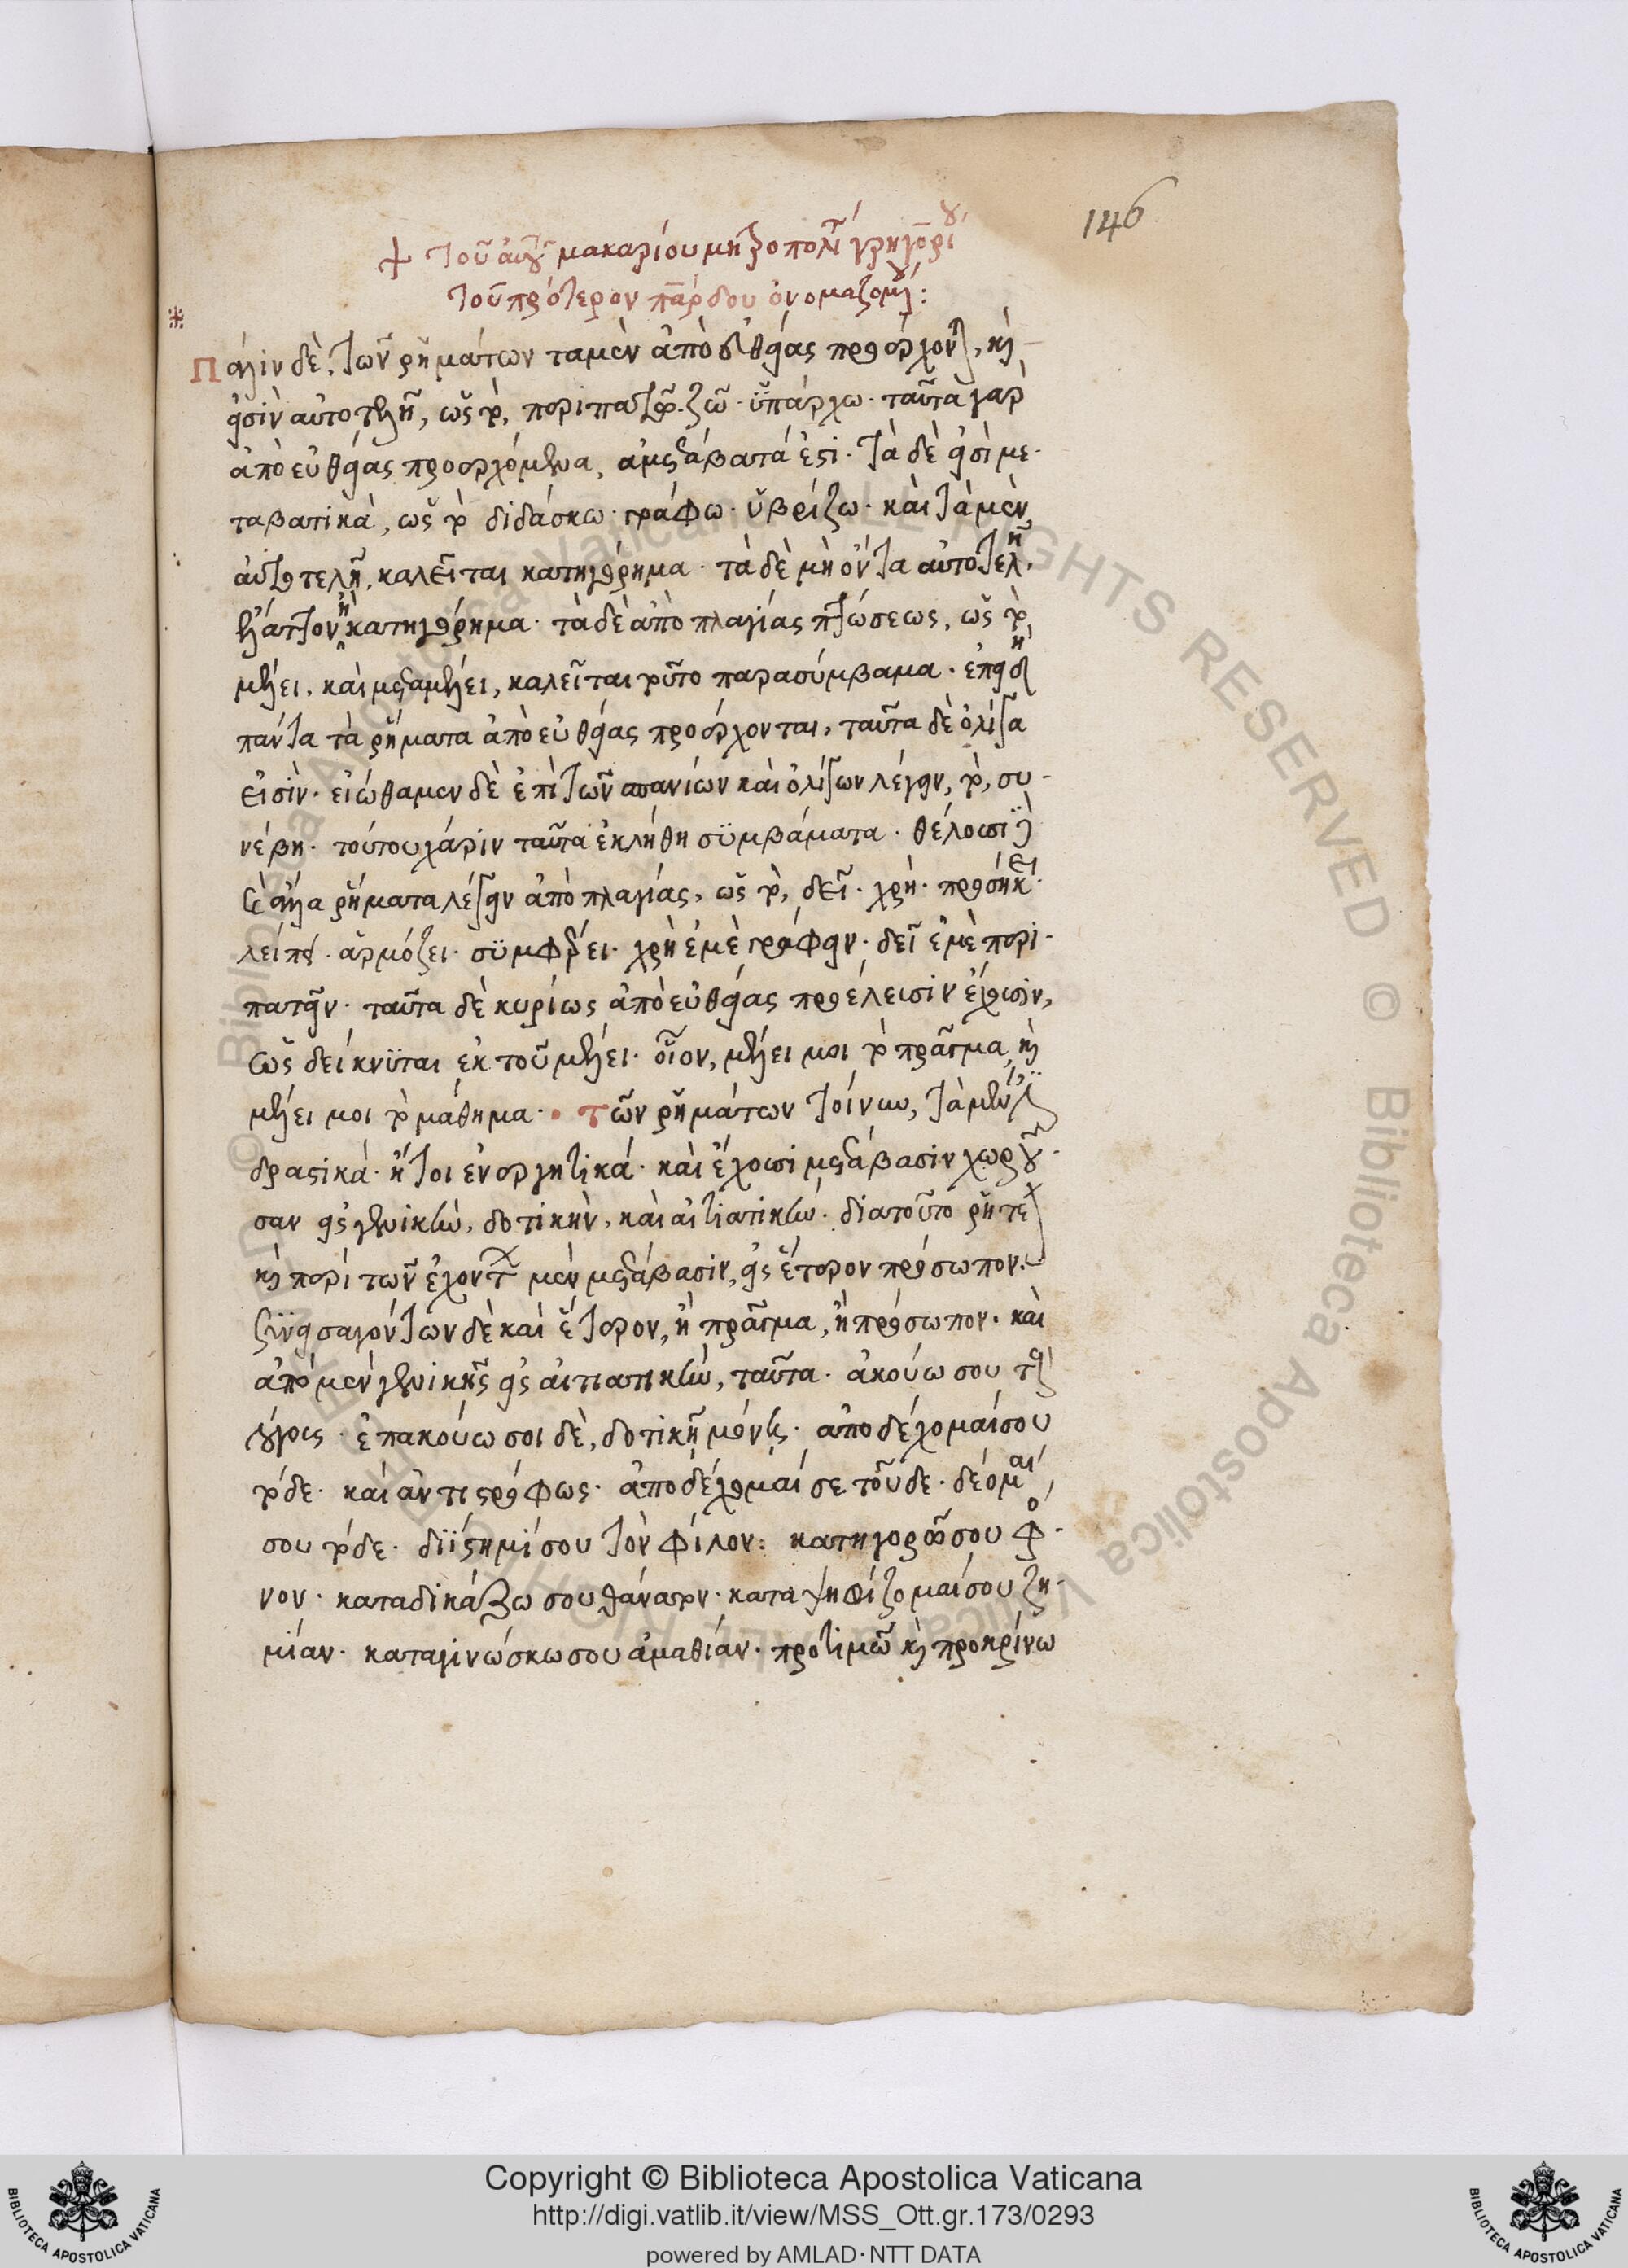 146
+ τοῦ αὐτοῦ μακαρίου μητροπολίτου γρηγορίου
τοῦ πρότερον πάρδου ὀνομαζομένου:
Πάλιν δὲ, τῶν ῥημάτων τὰ μὲν ἀπὸ εὐθείας προέρχονται, καὶ
εἰσὶν αὐτοτελῆ, ὡς τὸ, περιπατῶ. ζῶ. ὑπάρχω. ταῦτα γὰρ
ἀπὸ εὐθείας προερχόμενα, ἀμετάβατά ἐστι. τὰ δὲ εἰσὶ με-
ταβατικὰ, ὡς τὸ διδάσκω. γράφω. ὑβρίζω. καὶ τὰ μὲν
αὐτοτελῆ, καλεῖται κατηγόρημα. τὰ δὲ μὴ ὄντα αὐτοτελῆ.
ἔλαττον ἢ κατηγόρημα. τὰ δὲ ἀπὸ πλαγίας πτώσεως, ὡς τὸ,
μέλει. καὶ μεταμέλει, καλεῖται τοῦτο παρασύμβαμα. ἐπειδὴ
πάντα τὰ ῥήματα ἀπὸ εὐθείας προέρχονται, ταῦτα δὲ ὀλίγα
εἰσὶν. εἰώθαμεν δὲ ἐπὶ τῶν σπανίων καὶ ὀλίγων λέγειν, τὸ, συ-
νέβη. τούτου χάριν ταῦτα ἐκλήθη συμβάματα. θέλουσι δὲ
καὶ ἄλλα ῥήματα λέγειν ἀπὸ πλαγίας, ὡς τὸ, δεῖ. χρὴ. προσήκει.
λείπει. ἁρμόζει. συμφέρει. χρὴ ἐμὲ γράφειν. δεῖ ἐμὲ περι-
πατεῖν. ταῦτα δὲ κυρίως ἀπὸ εὐθείας προέλευσιν ἔχουσιν,
ὡς δείκνυται ἐκ τοῦ μέλει. οἷον, μέλει μοι τὸ πρᾶγμα, καὶ
μέλει μοι τὸ μάθημα. τῶν ῥημάτων τοίνυν, τὰ μέν εἰσι
δραστικὰ. ἤτοι ἐνεργητικά. καὶ ἔχουσι μετάβασιν χωροῦ-
σαν εἰς γενικὴν, δοτικὴν, καὶ αἰτιατικήν. διατοῦτο ῥητέον
καὶ περὶ τῶν ἐχόντων μὲν μετάβασιν, εἰς ἕτερον πρόσωπον.
συνεισαγόντων δὲ καὶ ἕτερον, ἢ πρᾶγμα, ἢ πρόσωπον. καὶ
ἀπὸ μὲν γενικῆς εἰς αἰτιατικὴν, ταῦτα. ἀκούω σου τοὺς
λόγους. ἐπακούω σοι δὲ, δοτικῇ μόνῃ. ἀποδέχομαί σου
τόδε. καὶ ἀντιστρόφως. ἀποδέχομαί σε τοῦδε. δέομαί
σου τόδε. διΐστημί σου τὸν φίλον: κατηγορῶ σου φό-
νον. καταδικάζω σου θάνατον. καταψηφίζομαί σου ζη-
μίαν. καταγινώσκω σου ἀμαθίαν. προτιμῶ καὶ προκρίνω
Copyright © Biblioteca Apostolica Vaticana
http://digi.vatlib.it/view/MSS_Ott.gr.173/0293
powered by AMLAD·NTT DATA